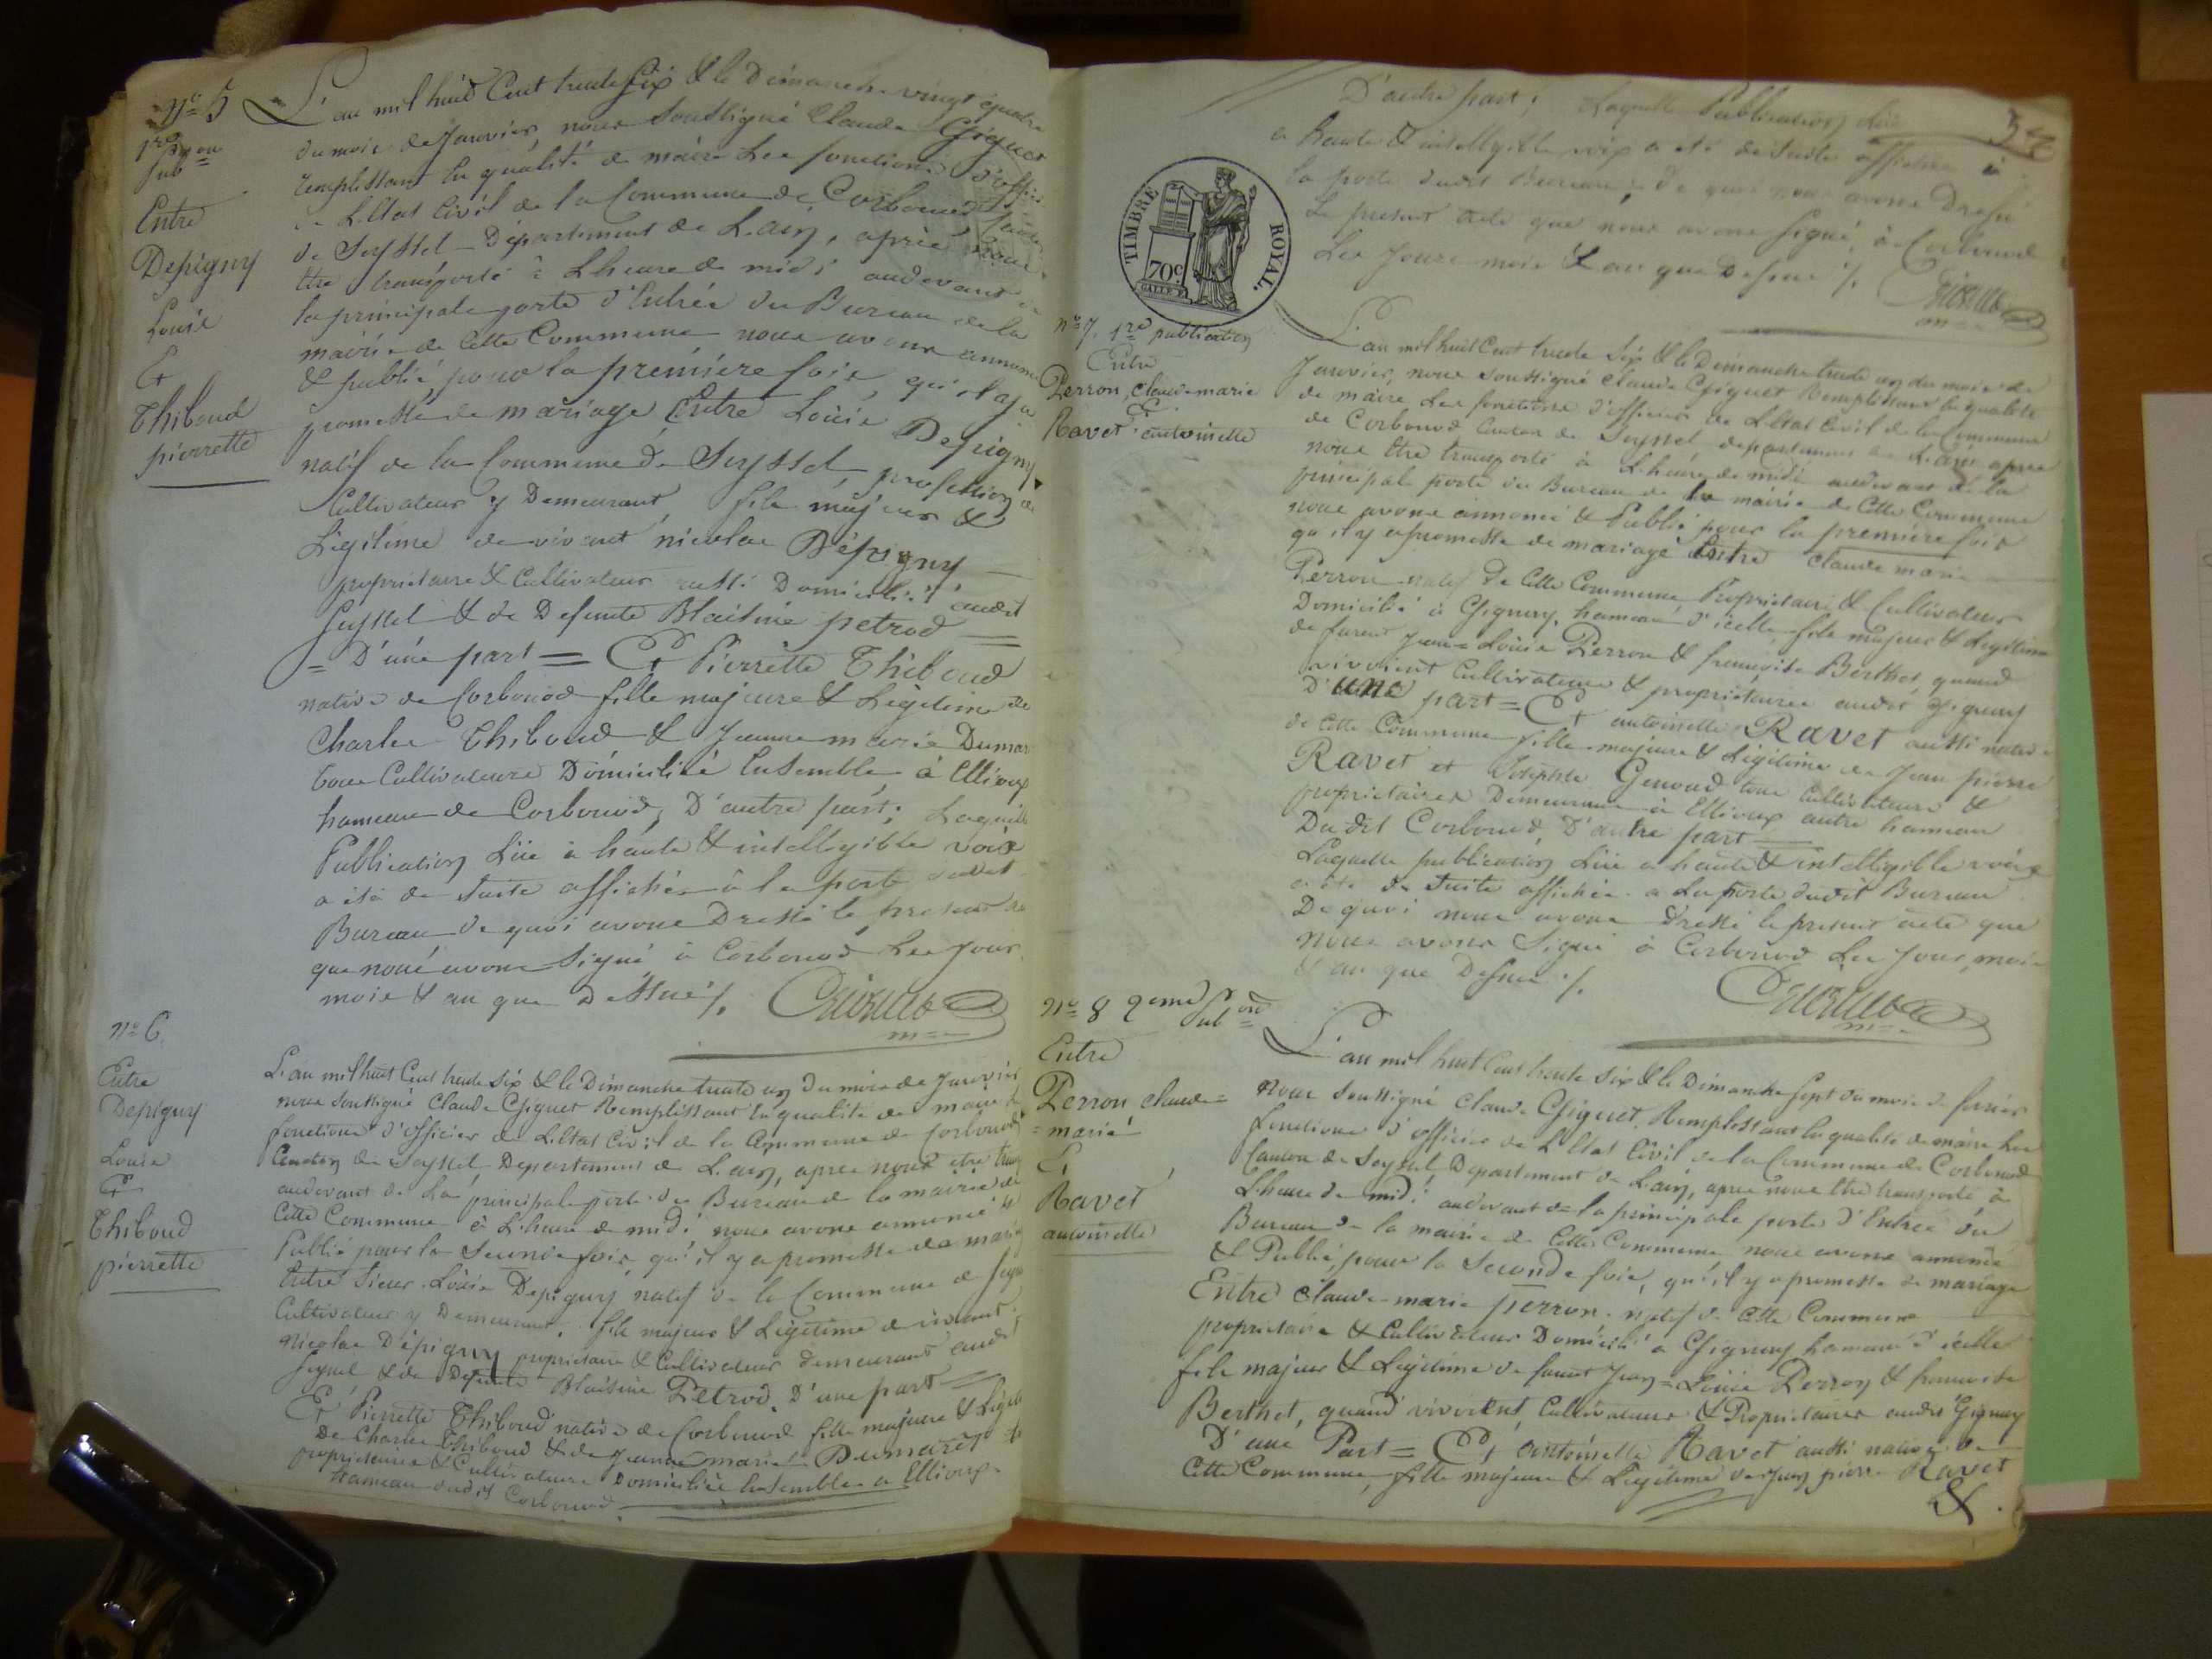 N° 5
1re
Pubon
Entre
Depigny
Louis
Et
Thiboud
pierrette
L'an mil huit Cent trente Six & le Dimanche vingt quatre
du mois de Janvier, nous Soussigné Claude Gignet
remplissant la qualité de maire Les fonctions d'offi
de L'Etat Civil de la Commune de Corbonod
de Seyssel Département de L'ain, après nous
être transporté à L'heure de midi audevant de
la principale porte d'Entrée du Bureau de la
mairie de Cette Commune nous avons annoncé
& publié pour la première fois, qu'il y a
promesse de mariage Entre Louis Depigny
natif de la Commune de Seyssel profession de
Cultivateur y Demeurant, fils majeur &
Légitime de vivant nicolas Dépigny
propriétaire & Cultivateur aussi Domicilié audit
Seyssel & de Defunte Blaisine petrod
= D'une part = Et Pierrette Thiboud
native de Corbonod fille majeure & Légitime de
Charles Thiboud & Jeanne marie Dumar
tous Cultivateurs Domiciliés Ensemble à Ellioux
hameau de Corbonod, D'autre part; Laquelle
Publication Lüe à haute & intelligible voix
a été de suite affichée à la porte dudit
Bureau de quoi avons Dressé le présent
que nous avons Signé à Corbonod Les Jour
mois & an que Dessus /.
N° 6
Entre
Depigny
Louis
Et
Thiboud
pierrette
L'an mil huit Cent trente Six & le Dimanche trente un du mois de Janvier
nous soussigné Claude Gignet Remplissant la qualité de maire
fonctions d'officier de L'Etat Civil de la Commune de Corbonod
Canton de Seyssel, Département de L'ain, après nous être
audevant de La principale porte du Bureau de la mairie de
Cette Commune à L'heure de midi nous avons annoncé &
Publié pour la Seconde fois, qu'il y a promesse de mari
Entre Sieur Louis Depigny natif de la Commune de
Cultivateur y Demeurant, fils majeur & Légitime de vivant
nicolas Dépigny propriétaire & Cultivateur demeurant audit
Seyssel & de Defunte Blaisine Petrod. D'une part =
Et Pierrette Thiboud native de Corbonod fille majeure &
de Charles Thiboud & de Jeanne marie Dumarest
propriétaires & Cultivateurs Domiciliés Ensemble à Ellioux
hameau dudit Corbonod.
D'autre part; Laquelle Publication Lüe
a haute & intelligible voix a été de suite affichée à
la porte dudit Bureau; de quoi nous avons Dressé
Le présent acte que nous avons signé, à Corbonod
Les Jours mois & an que Dessus /.
TIMBRE ROYAL.
70c
N° 7. 1re publication
Entre
Perron, claude marie
Et
Ravet antoinette
L'an mil huit Cent trente Six & le Dimanche trente un du mois de
Janvier, nous soussigné Claude Gignet Remplissant la qualité
de maire Les fonctions d'officier de L'Etat Civil de la Commune
de Corbonod Canton de Seyssel département de L'ain après
nous être transporté à L'heure de midi audevant de la
principale porte du Bureau de la mairie de Cette Commune
nous avons annoncé & Publié pour la première fois
qu'il y a promesse de mariage Entre Claude marie
Perron natif de Cette Commune Propriétaire & Cultivateur
Domicilié à Gignay, hameau d'icelle fils majeur & Légitime
de furent Jean = Louis Perron & françoise Berthet quand
vivoient Cultivateurs & propriétaires audit Gignay
D'une part = Et antoinette Ravet aussi native
de Cette Commune fille majeure & Légitime de Jean pierre
Ravet et Josephte Genoud tous Cultivateurs &
propriétaires Demeurant à Ellioux autre hameau
Dudit Corbonod, D'autre part
Laquelle publication Lüe a haute & intelligible voix
a été de suite affichée a La porte dudit Bureau
De quoi nous avons dressé le présent acte que
nous avons Signé à Corbonod Les Jour, mois
& an que Dessus /.
N° 8 2eme Pubon
Entre
Perron, claude =
= marie
Et
Ravet
antoinette
L'an mil huit Cent trente Six & le Dimanche Sept du mois de
nous Soussigné Claude Gignet, Remplissant la qualité de maire Les
fonctions d'officier de L'Etat Civil de la Commune de Corbonod
Canton de Seyssel, Département de L'ain, après nous être transporté à
L'heure de midi audevant de la principale porte d'Entrée du
Bureau de la mairie de Cette Commune nous avons annoncé
& Publié, pour la Seconde fois, qu'il y a promesse de mariage
Entre Claude-marie perron natif de Cette Commune
propriétaire & Cultivateur Domicilié à Gignay hameau d'icelle
fils majeur & Légitime de furent Jean = Louis Perron & françoise
Berthet, quand vivoient, Cultivateurs & Propriétaires audit Gignay
D'une Part = Et antoinette Ravet aussi native de
Cette Commune, fille majeure & Légitime de Jean pierre Ravet
&.